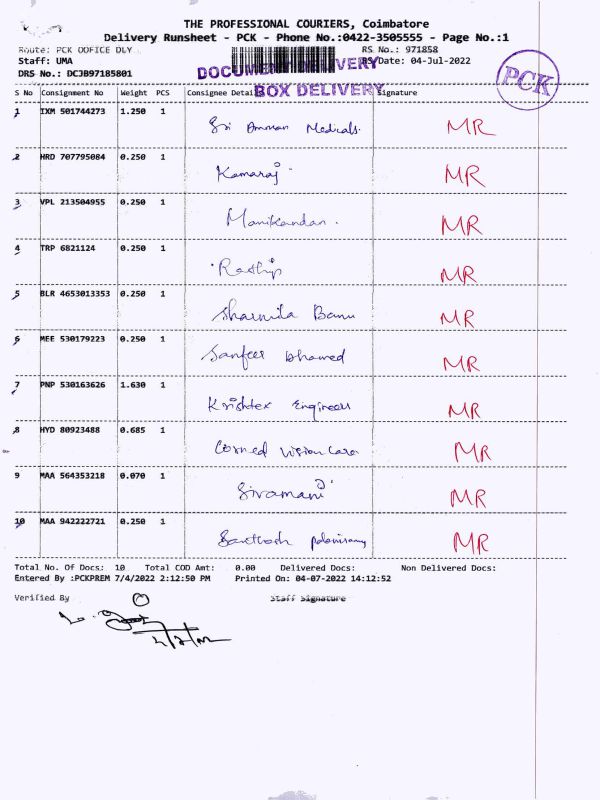 THE PROFESSIONAL COURIERS, Coimbatore
Delivery Runsheet - PCK - Phone No.:0422-3505555 - Page No.:1
Route: PCK OOFICE DLY RS No.: 971858
Staff: UMA RS Date: 04-Jul-2022
DRS No.: DCJB97185801
DOCUMENT DELIVERY
BOX DELIVERY
PCK
S No Consignment No Weight PCS Consignee Details Signature
1 IXM 501744273 1.250 1 Sri Amman Medicals. MR
2 HRD 707795084 0.250 1 Kamaraj MR
3 VPL 213504955 0.250 1 Manikandan. MR
4 TRP 6821124 0.250 1 MR
5 BLR 4653013353 0.250 1 Sharmila Banu MR
6 MEE 530179223 0.250 1 Sanfeer Ahamed MR
7 PNP 530163626 1.630 1 Krishtex Engineers MR
8 HYD 80923488 0.685 1 vision care MR
9 MAA 564353218 0.070 1 Sivamani MR
10 MAA 942222721 0.250 1 Santhosh MR
Total No. Of Docs: 10 Total COD Amt: 0.00 Delivered Docs: Non Delivered Docs:
Entered By :PCKPREM 7/4/2022 2:12:50 PM Printed On: 04-07-2022 14:12:52
Verified By Staff Signature